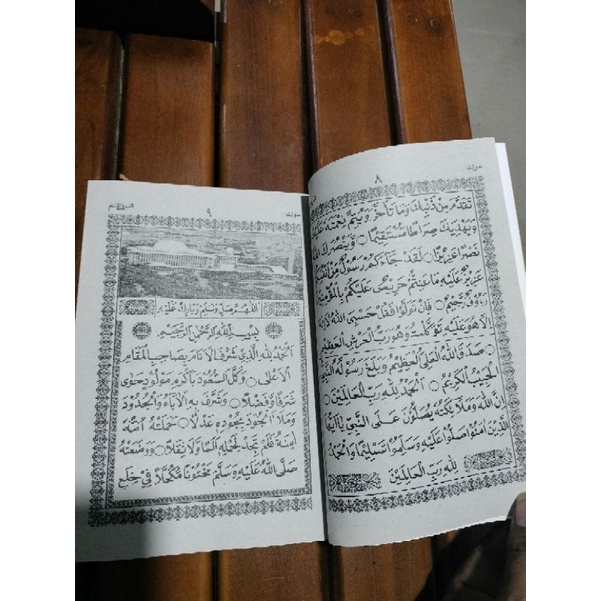 ٨
تَقَدَّمَ مِنْ ذَنْبِكَ وَمَا تَأَخَّرَ وَيُتِمَّ نِعْمَتَهُ عَلَيْكَ
وَيَهْدِيَكَ صِرَاطًا مُسْتَقِيْمًا ○ وَيَنْصُرَكَ اللهُ
نَصْرًا عَزِيْزًا ○ لَقَدْ جَاءَكُمْ رَسُوْلٌ مِنْ اَنْفُسِكُمْ
عَزِيْزٌ عَلَيْهِ مَاعَنِتُّمْ حَرِيْصٌ عَلَيْكُمْ بِالْمُؤْمِنِيْنَ
رَءُوْفٌ رَحِيْمٌ ○ فَاِنْ تَوَلَّوْا فَقُلْ حَسْبِيَ اللهُ لَااِلٰهَ
اِلَّا هُوَ عَلَيْهِ تَوَكَّلْتُ وَهُوَ رَبُّ الْعَرْشِ الْعَظِيْمِ
○ صَدَقَ اللهُ الْعَلِيُّ الْعَظِيْمُ وَبَلَّغَ رَسُوْلُهُ النَّبِيُّ
الْحَبِيْبُ الْكَرِيْمُ ○ اَلْحَمْدُ لِلّٰهِ رَبِّ الْعَالَمِيْنَ ○
اِنَّ اللهَ وَمَلَائِكَتَهُ يُصَلُّوْنَ عَلَى النَّبِيِّ يَااَيُّهَا
الَّذِيْنَ اٰمَنُوْا صَلُّوْا عَلَيْهِ وَسَلِّمُوْا تَسْلِيْمًا وَالْحَمْدُ
لِلّٰهِ رَبِّ الْعَالَمِيْنَ
٩
اَللّٰهُمَّ صَلِّ وَسَلِّمْ وَبَارِكْ عَلَيْهِ
بِسْمِ اللهِ الرَّحْمٰنِ الرَّحِيْمِ
اَلْحَمْدُ لِلّٰهِ الَّذِيْ شَرَّفَ الْاَنَامَ بِصَاحِبِ الْمَقَامِ
الْاَعْلٰى ○ وَكَمَّلَ السُّعُوْدَ بِاَكْرَمِ مَوْلُوْدٍ حَوٰى
شَرَفًا وَفَضْلًا ○ وَشَرَّفَ بِهِ الْاٰبَاءَ وَالْجُدُوْدَ
وَمَلَأَ الْوُجُوْدَ بِجُوْدِهِ عَدْلًا ○ حَمَلَتْهُ اُمُّهُ
اٰمِنَةُ فَلَمْ تَجِدْ لِحَمْلِهِ اَلَمًا وَلَا ثِقَلًا ○ وَوَضَعَتْهُ
صَلَّى اللهُ عَلَيْهِ وَسَلَّمَ مَخْتُوْنًا مُكَحَّلًا فِيْ خِلَعِ